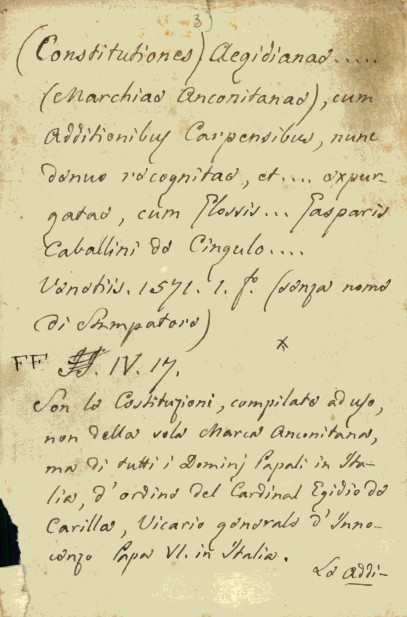 3)
(Constitutiones) Aegidianae.....
(Marchiae Anconitanae), cum
Additionibus Carpensibus, nunc
denuo recognitae, et.... expur-
gatae, cum Glossis... Gasparis
Caballini de Cingulo....
Venetiis. 1571. 1. fo. (senza nome
di Stampatore)
FF . IV. 17.
Son le Costituzioni, compilate ad uso,
non della sola Marca Anconitana,
ma di tutti i Dominj Papali in Ita-
lia, d'ordine del Cardinal Egidio de
Carilla, Vicario generale d'Inno-
cenzo Papa VI. in Italia.
Le Addi-